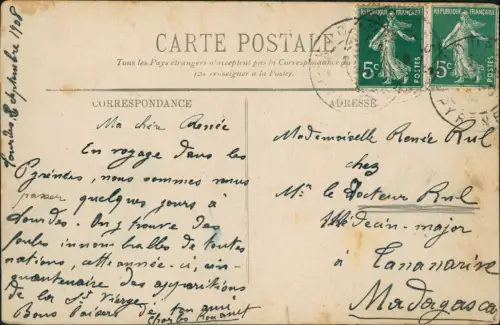 Lourdes, Septembre 1908
CARTE POSTALE
Tous les Pays étrangers n'acceptent pas la Correspondance au
(se renseigner à la Poste).
REPUBLIQUE FRANÇAISE
5c
POSTES
REPUBLIQUE FRANÇAISE
5c
POSTES
CORRESPONDANCE
Ma chère Renée
En voyage dans les
Pyrénées, nous sommes venus
passer quelques jours à
Lourdes. On y trouve des
foules innombrables de toutes
nations, cette année-ci, cin-
quantenaire des apparitions
de la Ste Vierge.
Bons baisers de ton ami
Charles
ADRESSE
Mademoiselle Renée Rul
chez
Mr. le Docteur Rul
Médecin-major
à Tananarive
Madagascar